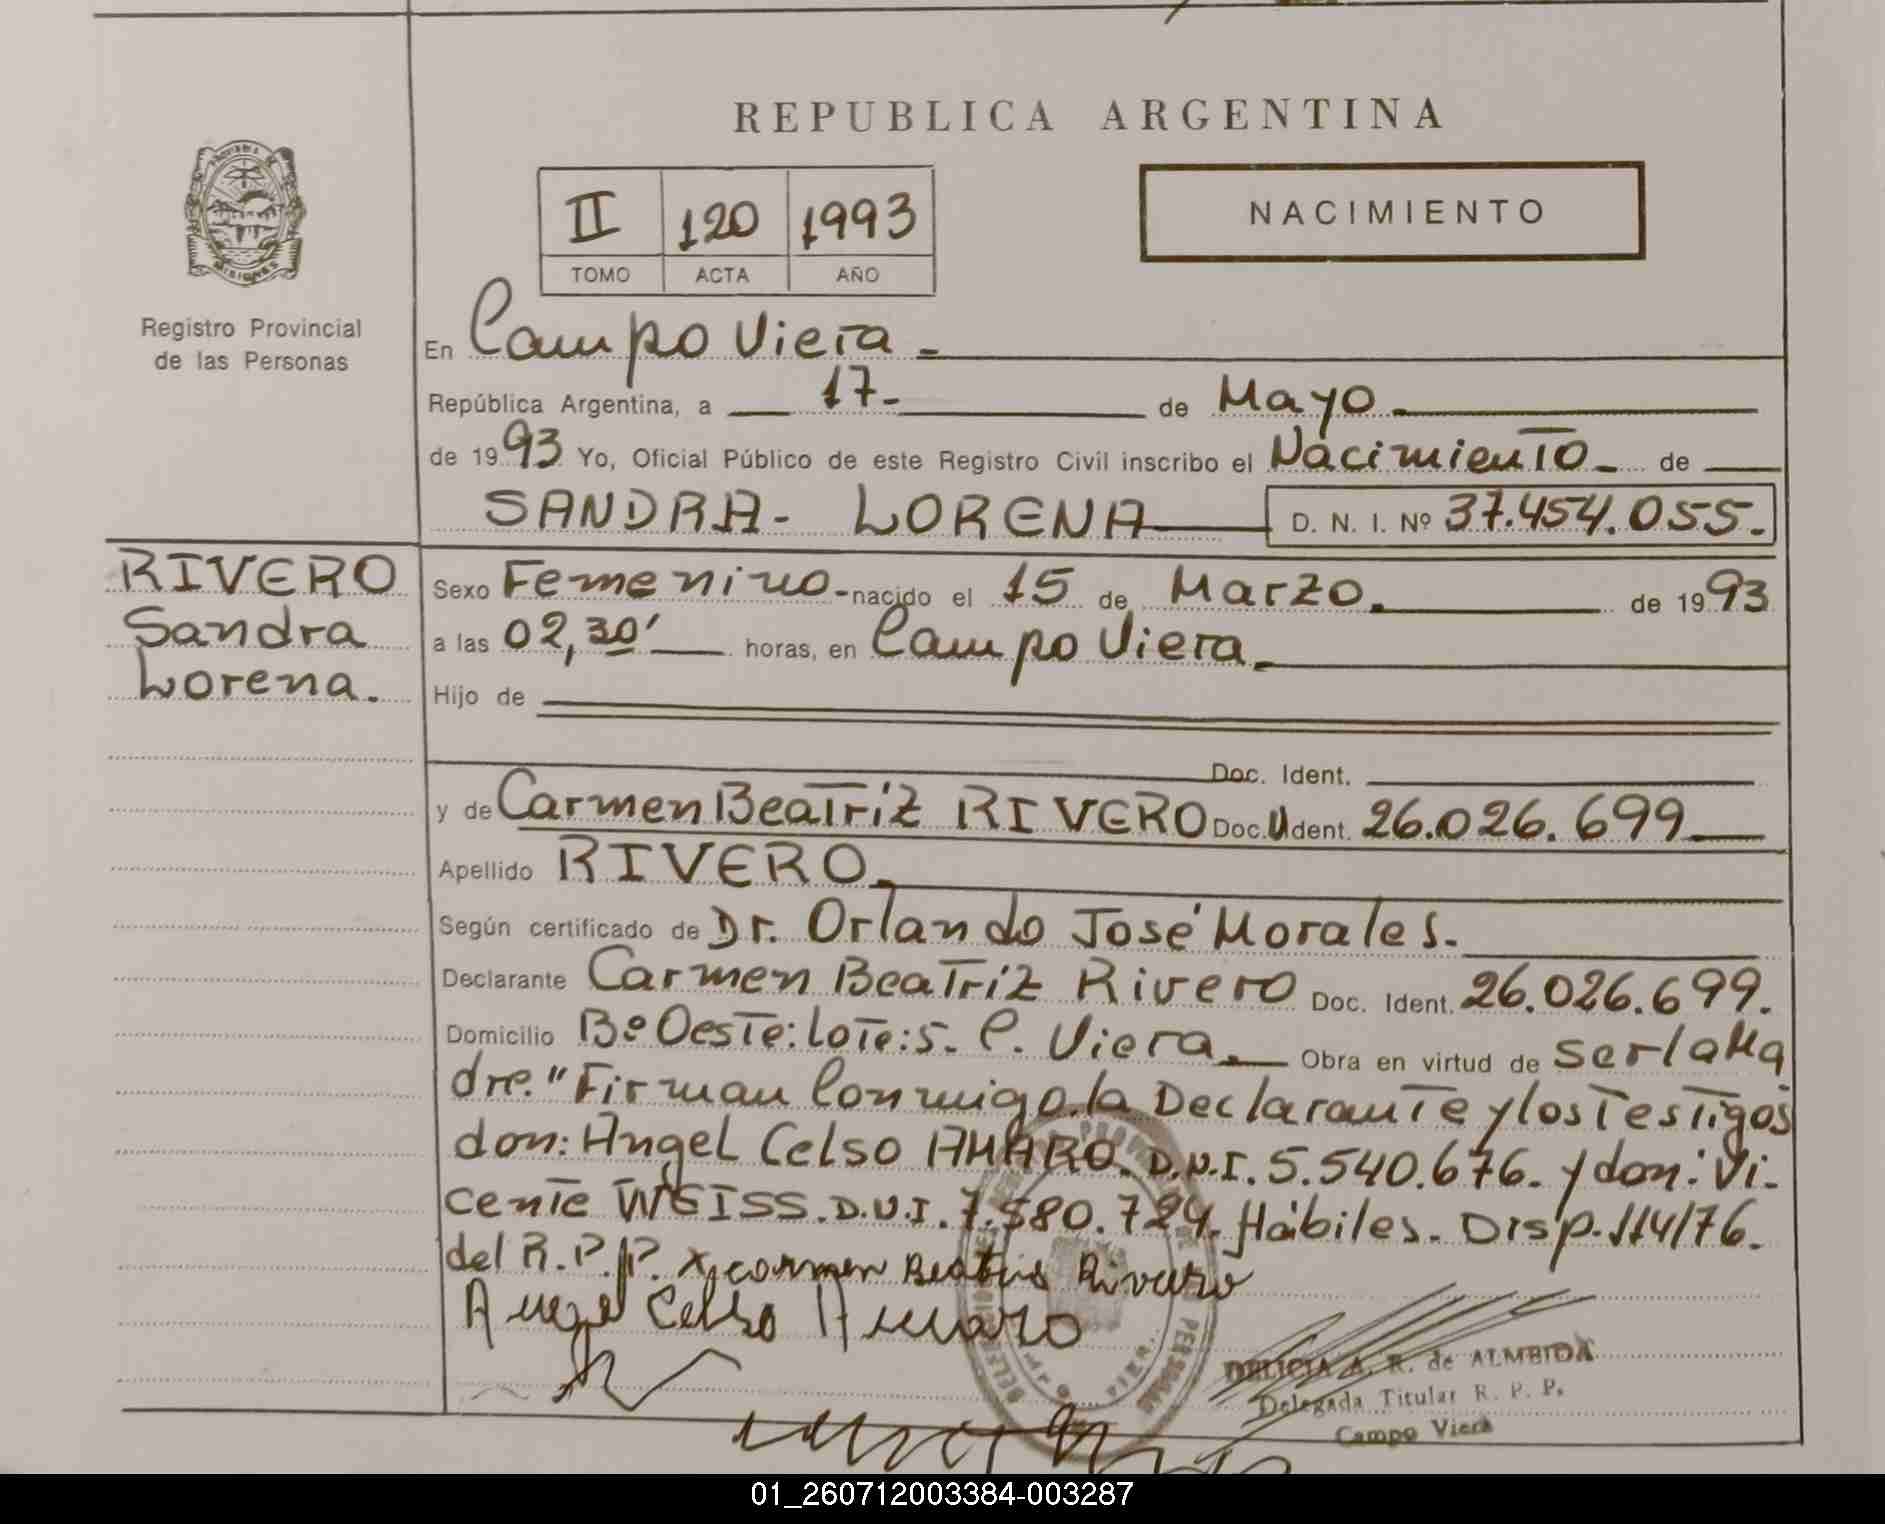 REPUBLICA ARGENTINA
II 120 1993
TOMO ACTA AÑO
NACIMIENTO
MISIONES
Registro Provincial
de las Personas
En Campo Viera
República Argentina, a 17- de Mayo
de 1993 Yo, Oficial Público de este Registro Civil inscribo el Nacimiento de
SANDRA- LORENA D. N. I. Nº 37.454.055.
RIVERO
Sandra
Lorena.
Sexo Femenino- nacido el 15 de Marzo. de 1993
a las 02,30' horas, en Campo Viera
Hijo de
Doc. Ident.
y de Carmen Beatriz RIVERO Doc. Udent. 26.026.699
Apellido RIVERO
Según certificado de Dr. Orlando José Morales.
Declarante Carmen Beatriz Rivero Doc. Ident. 26.026.699.
Domicilio Bº Oeste: Lote: 5. C. Viera Obra en virtud de ser la Ma
dre." Firman Conmigo la Declarante y los Testigos
don: Angel Celso AMARO. D.N.I. 5.540.676. y don: Vi-
cente WEISS. D.N.I. 7.580.724. Hábiles. Disp. 114/76.
del R.P.P. x carmen Beatris Rivero
Angel Celso Amaro
DELICIA A. R. de ALMEIDA
Delegada Titular R. P. P.
Campo Viera
01_260712003384-003287